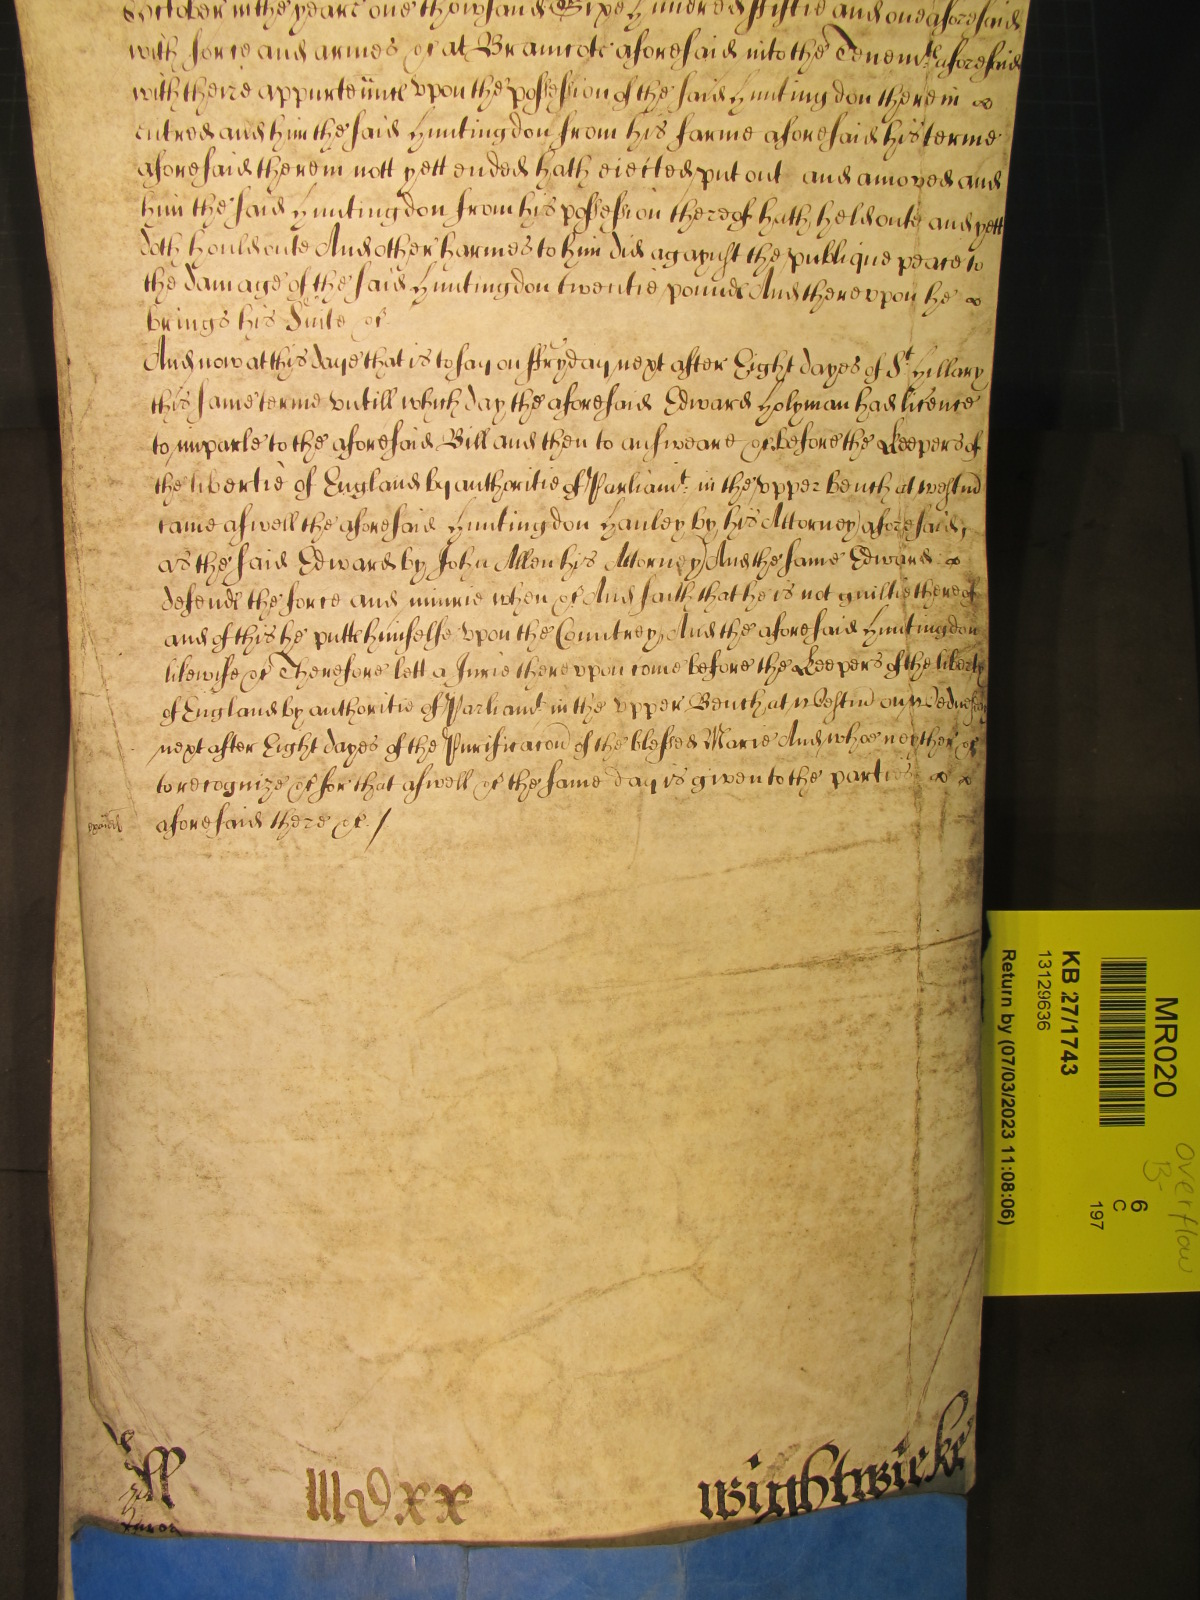 October in the yeare one thowsand Sixe Hundred fiftie and one aforesaid
with force and armes &c at Bramcote aforesaid into the Tenemts aforesaid
with theire appurtennces upon the possession of the said Huntingdon therein
entred and him the said Huntingdon from his farme aforesaid his terme
aforesaid therein nott yett ended hath eiected put out and amoved and
him the said Huntingdon from his possession thereof hath held oute and yett
doth hould oute And other harmes to him did agaynst the publique peace to
the damage of the said Huntingdon twentie pounds And thereupon he
brings his Suite &c
And now at this daye that is to say on ffryday next after Eight dayes of St Hillary
this same terme vntill which day the aforesaid Edward Holyman had licence
to imparle to the aforesaid Bill and then to answeare &c before the Keepers of
the libertie of England by authoritie of Parliamt in the vpper bench at Westm
came aswell the aforesaid Huntingdon Hanley by his Attorney aforesaid
as the said Edward by John Allen his Attorney And the same Edward
defends the force and iniurie when &c And saith that he is not guiltie thereof
and of this he putts himselfe vpon the Countrey And the aforesaid Huntingdon
likewise &c Therefore lett a Jurie thereupon come before the Keepers of the libertie
of England by authoritie of Parliamt in the vpper Bench at Westm on Wednesday
next after Eight dayes of the Purificacon of the blessed Marie And whoe neyther &c
to recognize &c for that aswell &c the same day is given to the parties
aforesaid there &c /
wightwicke
MR020
KB 27/1743
13129636
Return by (07/03/2023 11:08:06)
6
C
197
Overflow
B-